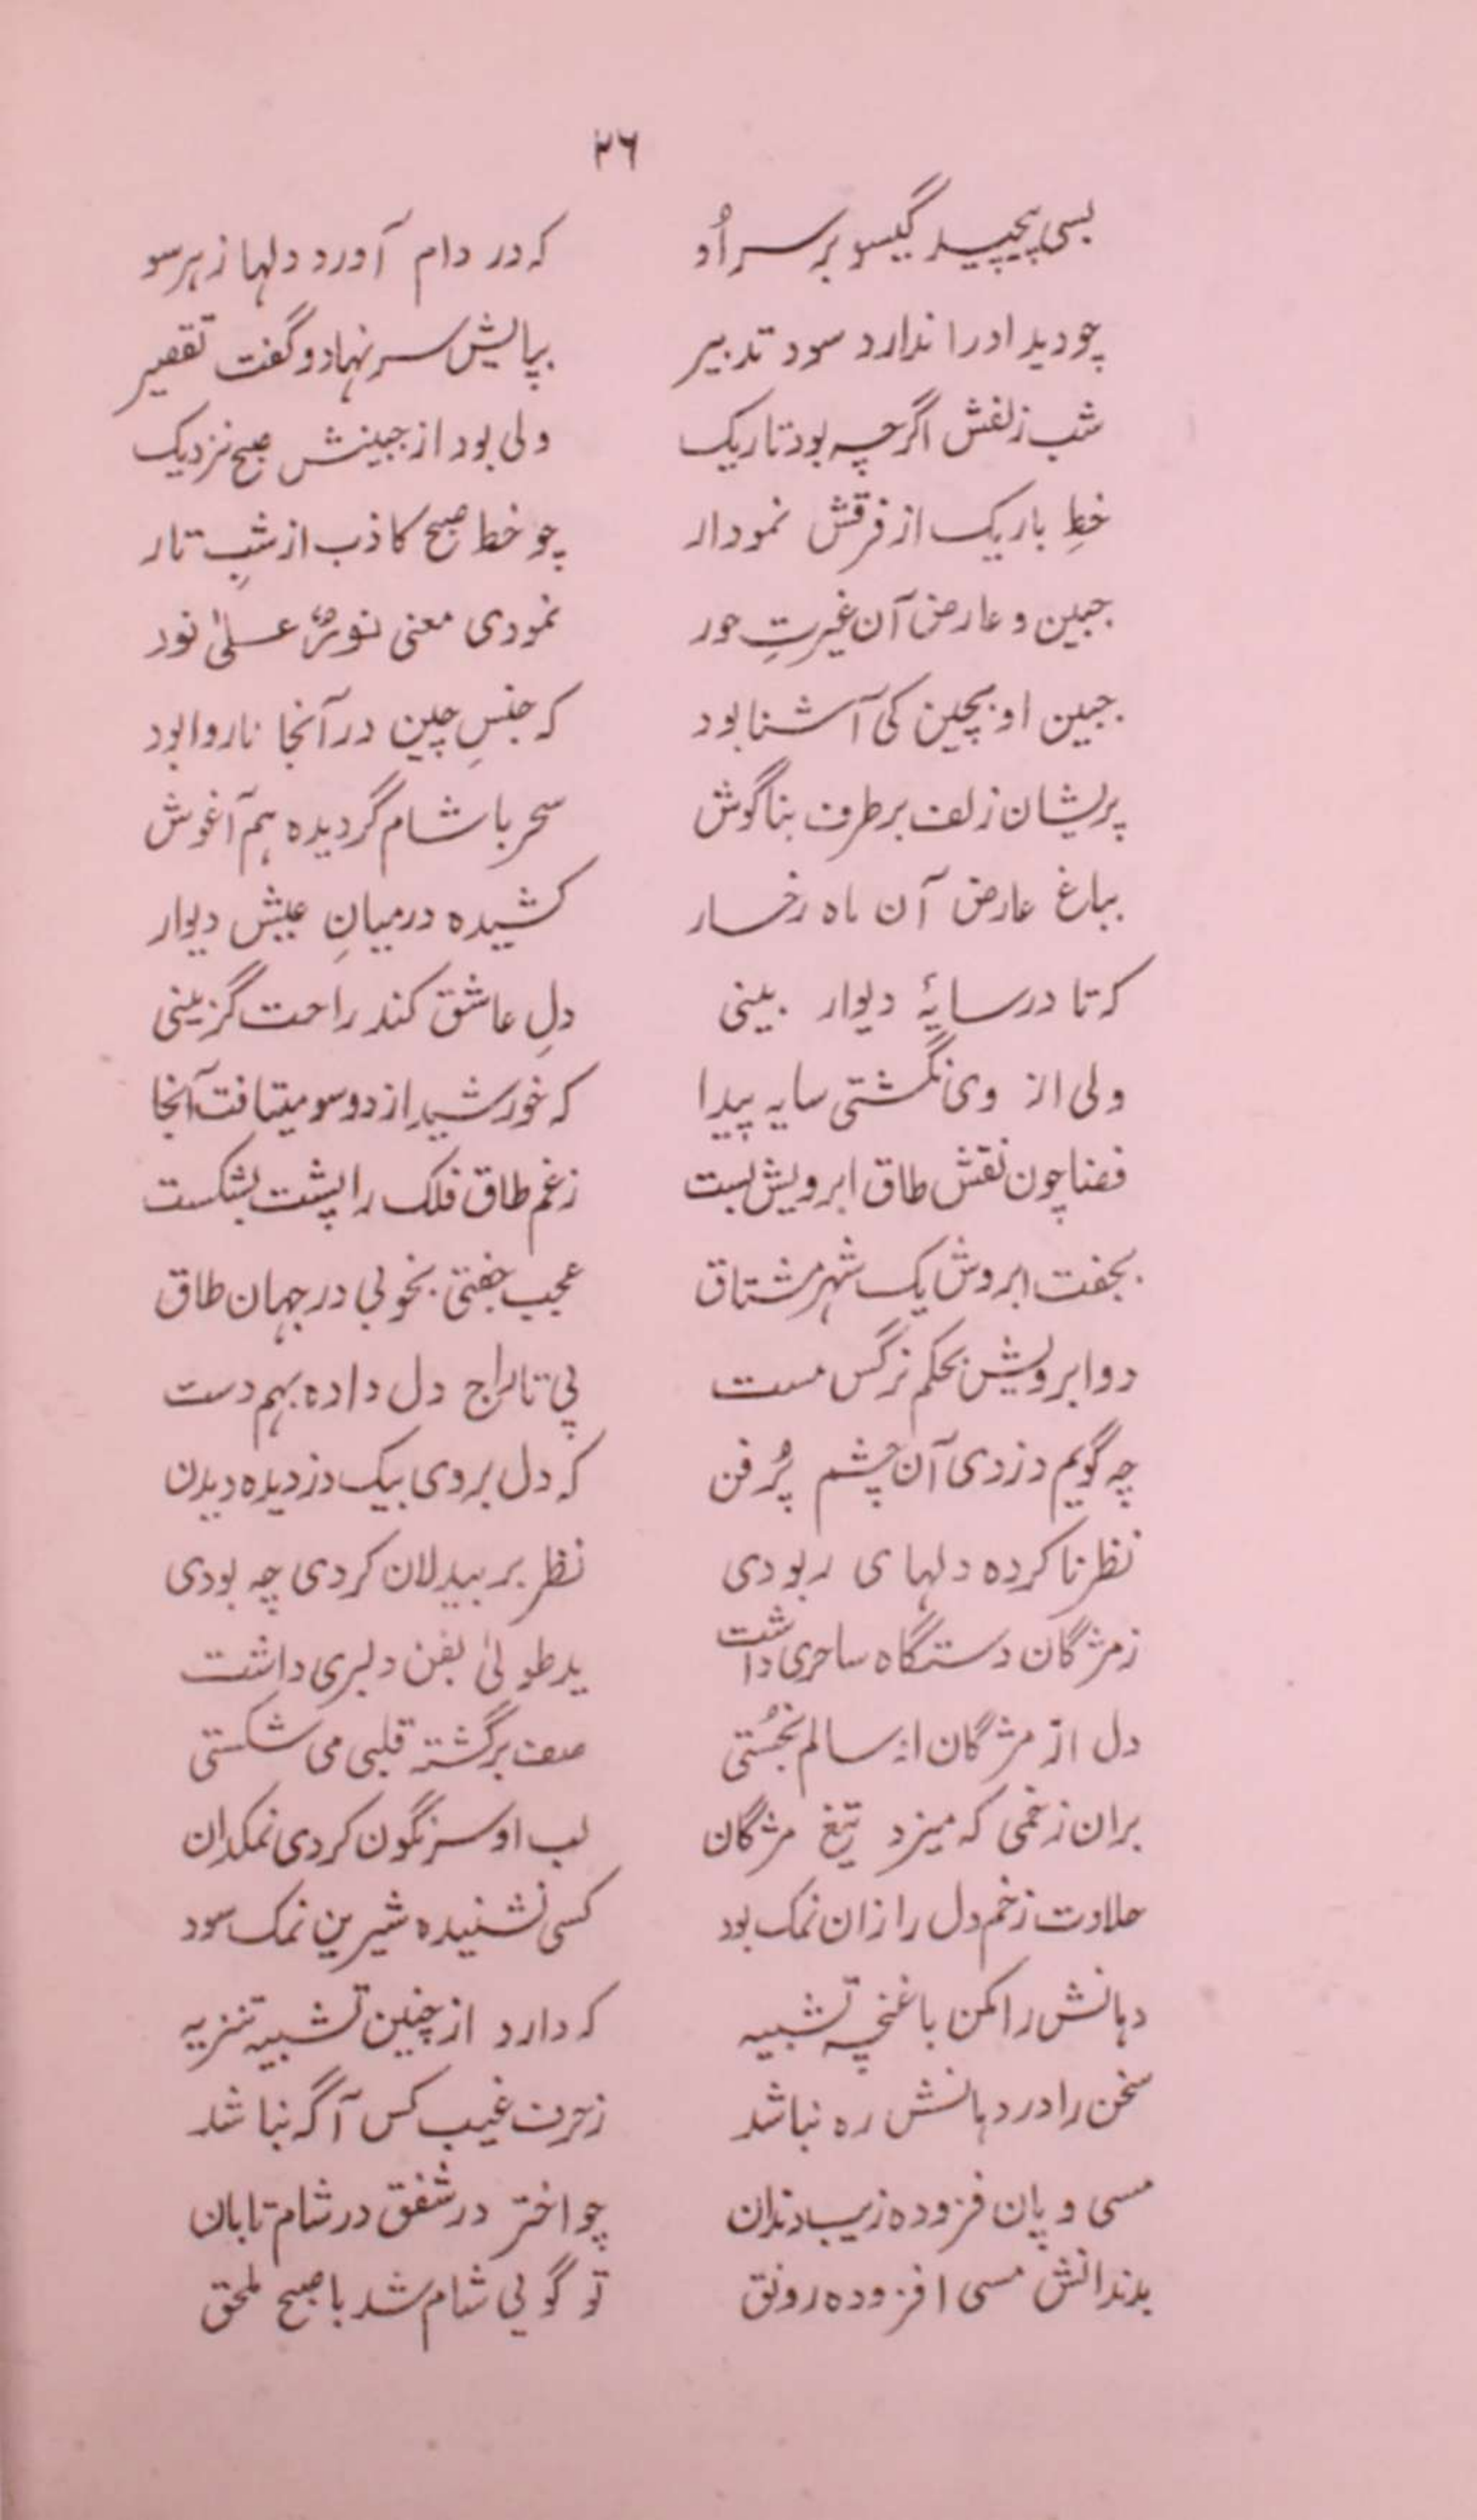 ۲۶
بسی پیچید گیسو بر سر اُو که در دام آورد دلها ز هر سو
چو دید او را ندارد سود تدبیر بپایش سر نهاد و گفت تقصیر
شب زلفش اگرچه بود تاریک ولی بود از جبینش صبح نزدیک
خطِ باریک از فرقش نمودار چو خط صبح کاذب از شبِ تار
جبین و عارض آن غیرتِ حور نمودی معنی نورٌ علیٰ نور
جبین او بچین کی آشنا بود که جنسِ چین در آنجا ناروا بود
پریشان زلف بر طرف بناگوش سحر با شام گردیده هم آغوش
بباغ عارض آن ماه رخسار کشیده درمیانِ عیش دیوار
که تا در سایۀ دیوار بینی دلِ عاشق کند راحت گزینی
ولی از وی نگشتی سایه پیدا که خورشید از دو سو میتافت آنجا
قضا چون نقش طاق ابرویش بست ز غم طاق فلک را پشت بشکست
بجفت ابروش یک شهر مشتاق عجب جفتی بخوبی در جهان طاق
دو ابرویش بحکم نرگس مست پی تاراج دل داده بهم دست
چه گویم دزدی آن چشم پُر فن که دل بروی بیک دزدیده دیدن
نظر ناکرده دلها می ربودی نظر بر بیدلان کردی چه بودی
ز مژگان دستگاه ساحری داشت ید طولیٰ بفن دلبری داشت
دل از مژگان او سالم نجَستی صف برگشته قلبی می شکستی
بران زخمی که میزد تیغ مژگان لب او سرنگون کردی نمکدان
حلاوت زخم دل را زان نمک بود کسی نشنیده شیرین نمک سود
دهانش را مکن با غنچه تشبیه که دارد از چنین تشبیه تنزیه
سخن را در دهانش ره نباشد ز حرف غیب کس آگه نباشد
مسی و پان فزوده زیب دندان چو اختر در شفق در شام تابان
بدندانش مسی افزوده رونق تو گویی شام شد با صبح ملحق